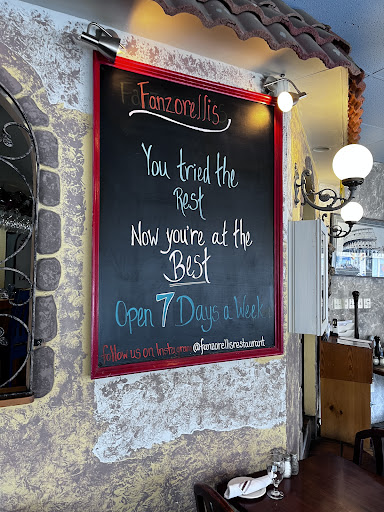 Fanzorellis
You tried the
Rest
Now you're at the
Best
Open 7 Days a Week
follow us on Instagram @fanzorellisrestaurant